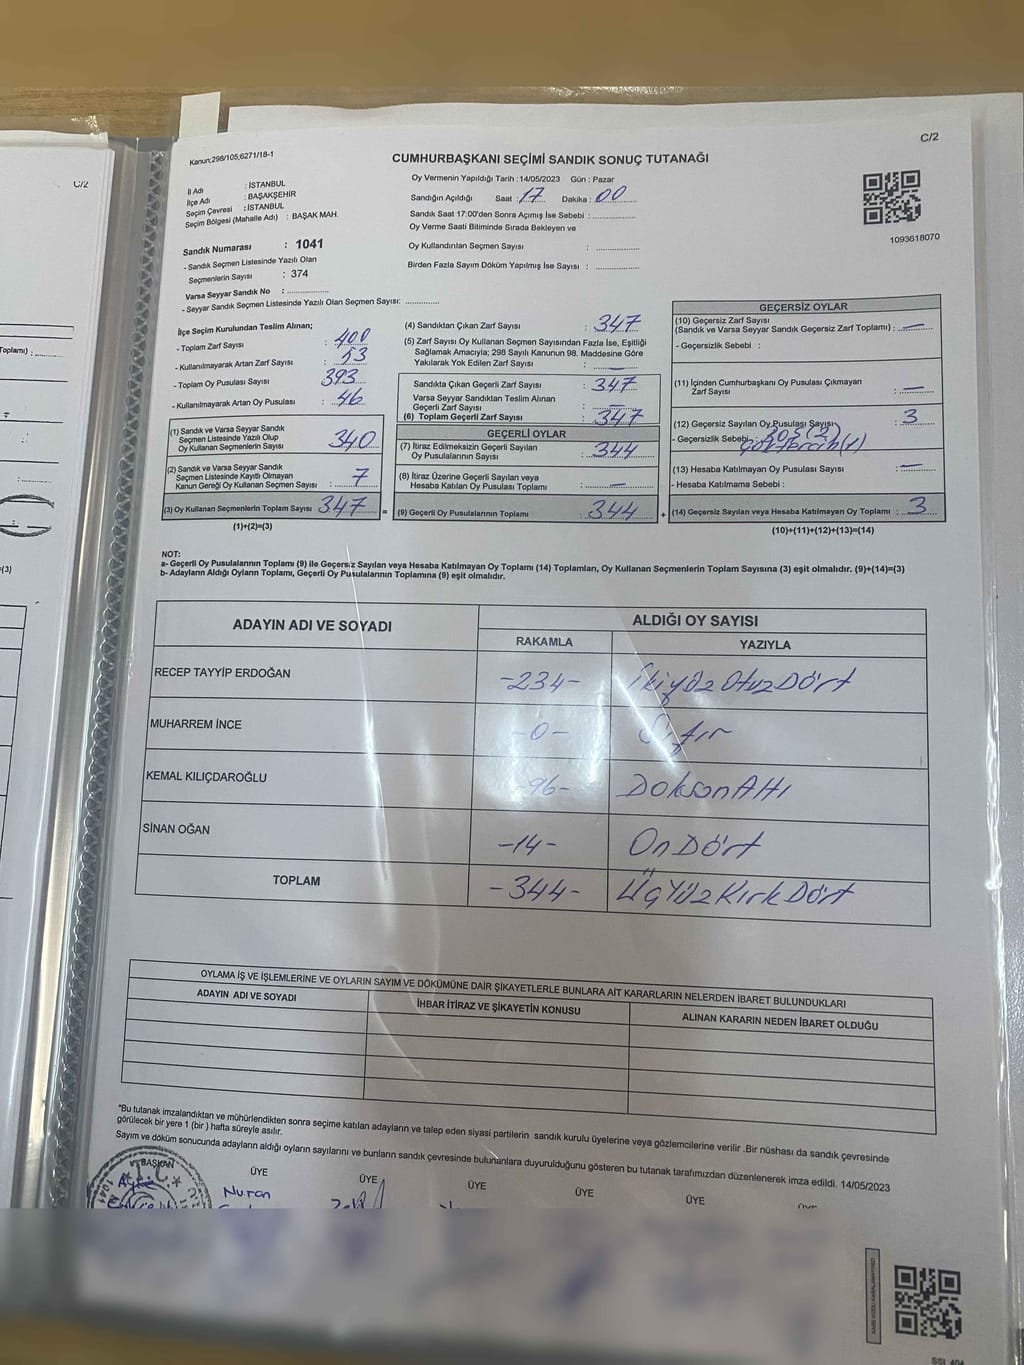 C/2
C/2
Kanun;298/105;6271/18-1
CUMHURBAŞKANI SEÇİMİ SANDIK SONUÇ TUTANAĞI
Oy Vermenin Yapıldığı Tarih :14/05/2023 Gün : Pazar
İl Adı : İSTANBUL
İlçe Adı : BAŞAKŞEHİR
Seçim Çevresi : İSTANBUL
Seçim Bölgesi (Mahalle Adı) : BAŞAK MAH.
Sandığın Açıldığı Saat : 17 Dakika : 00
Sandık Saat 17:00'den Sonra Açılmış İse Sebebi :
Oy Verme Saati Bitiminde Sırada Bekleyen ve
Oy Kullandırılan Seçmen Sayısı :
Birden Fazla Sayım Döküm Yapılmış İse Sayısı :
1093618070
Sandık Numarası : 1041
- Sandık Seçmen Listesinde Yazılı Olan
Seçmenlerin Sayısı : 374
Varsa Seyyar Sandık No :
- Seyyar Sandık Seçmen Listesinde Yazılı Olan Seçmen Sayısı:
İlçe Seçim Kurulundan Teslim Alınan;
- Toplam Zarf Sayısı : 400
- Kullanılmayarak Artan Zarf Sayısı : 53
- Toplam Oy Pusulası Sayısı : 393
- Kullanılmayarak Artan Oy Pusulası : 46
(1) Sandık ve Varsa Seyyar Sandık
Seçmen Listesinde Yazılı Olup
Oy Kullanan Seçmenlerin Sayısı : 340
(2) Sandık ve Varsa Seyyar Sandık
Seçmen Listesinde Kayıtlı Olmayan
Kanun Gereği Oy Kullanan Seçmen Sayısı : 7
(3) Oy Kullanan Seçmenlerin Toplam Sayısı 347 =
(1)+(2)=(3)
(4) Sandıktan Çıkan Zarf Sayısı : 347
(5) Zarf Sayısı Oy Kullanan Seçmen Sayısından Fazla İse, Eşitliği
Sağlamak Amacıyla; 298 Sayılı Kanunun 98. Maddesine Göre
Yakılarak Yok Edilen Zarf Sayısı : —
Sandıkta Çıkan Geçerli Zarf Sayısı : 347
Varsa Seyyar Sandıktan Teslim Alınan
Geçerli Zarf Sayısı : —
(6) Toplam Geçerli Zarf Sayısı : 347
GEÇERLİ OYLAR
(7) İtiraz Edilmeksizin Geçerli Sayılan
Oy Pusulalarının Sayısı : 344
(8) İtiraz Üzerine Geçerli Sayılan veya
Hesaba Katılan Oy Pusulası Toplamı : —
(9) Geçerli Oy Pusulalarının Toplamı : 344 +
GEÇERSİZ OYLAR
(10) Geçersiz Zarf Sayısı
(Sandık ve Varsa Seyyar Sandık Geçersiz Zarf Toplamı) : —
- Geçersizlik Sebebi :
(11) İçinden Cumhurbaşkanı Oy Pusulası Çıkmayan
Zarf Sayısı : —
(12) Geçersiz Sayılan Oy Pusulası Sayısı : 3
- Geçersizlik Sebebi
(13) Hesaba Katılmayan Oy Pusulası Sayısı : —
- Hesaba Katılmama Sebebi :
(14) Geçersiz Sayılan veya Hesaba Katılmayan Oy Toplamı : 3
(10)+(11)+(12)+(13)=(14)
NOT:
a- Geçerli Oy Pusulalarının Toplamı (9) ile Geçersiz Sayılan veya Hesaba Katılmayan Oy Toplamı (14) Toplamları, Oy Kullanan Seçmenlerin Toplam Sayısına (3) eşit olmalıdır. (9)+(14)=(3)
b- Adayların Aldığı Oyların Toplamı, Geçerli Oy Pusulalarının Toplamına (9) eşit olmalıdır.
ADAYIN ADI VE SOYADI ALDIĞI OY SAYISI
RAKAMLA YAZIYLA
RECEP TAYYİP ERDOĞAN -234- İkiyüz Otuz Dört
MUHARREM İNCE -0- Sıfır
KEMAL KILIÇDAROĞLU -96- Doksan Altı
SİNAN OĞAN -14- On Dört
TOPLAM -344- ÜçYüz Kırk Dört
OYLAMA İŞ VE İŞLEMLERİNE VE OYLARIN SAYIM VE DÖKÜMÜNE DAİR ŞİKAYETLERLE BUNLARA AİT KARARLARIN NELERDEN İBARET BULUNDUKLARI
ADAYIN ADI VE SOYADI İHBAR İTİRAZ VE ŞİKAYETİN KONUSU ALINAN KARARIN NEDEN İBARET OLDUĞU
*Bu tutanak imzalandıktan ve mühürlendikten sonra seçime katılan adayların ve talep eden siyasi partilerin sandık kurulu üyelerine veya gözlemcilerine verilir .Bir nüshası da sandık çevresinde
görülecek bir yere 1 (bir ) hafta süreyle asılır.
Sayım ve döküm sonucunda adayların aldığı oyların sayılarını ve bunların sandık çevresinde bulunanlara duyurulduğunu gösteren bu tutanak tarafımızdan düzenlenerek imza edildi. 14/05/2023
BAŞKAN ÜYE ÜYE ÜYE ÜYE ÜYE
Nuran